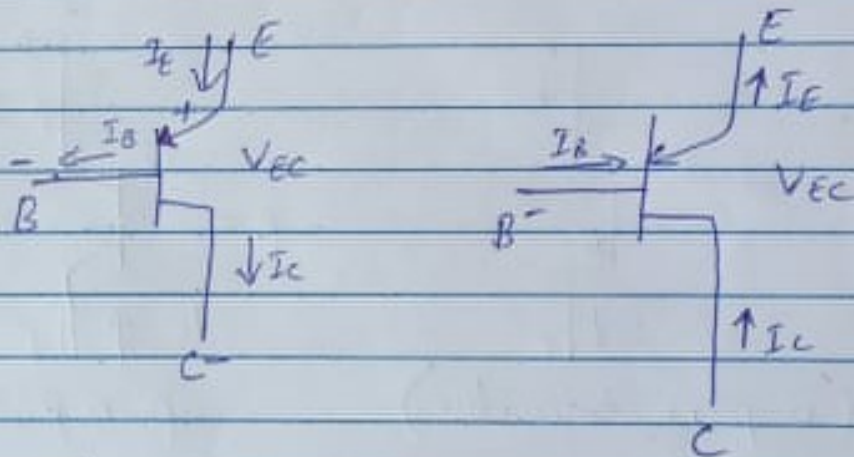 I_E E
+
I_B
- V_EC
B
I_C
C -
E
I_E
I_B
V_EC
B -
I_C
C